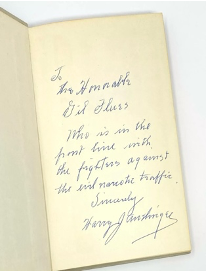 To
The Honorable
Gil Fluss
Who is in the
front line with
the fighters against
the evil narcotic traffic.
Sincerely
Harry J Anslinger